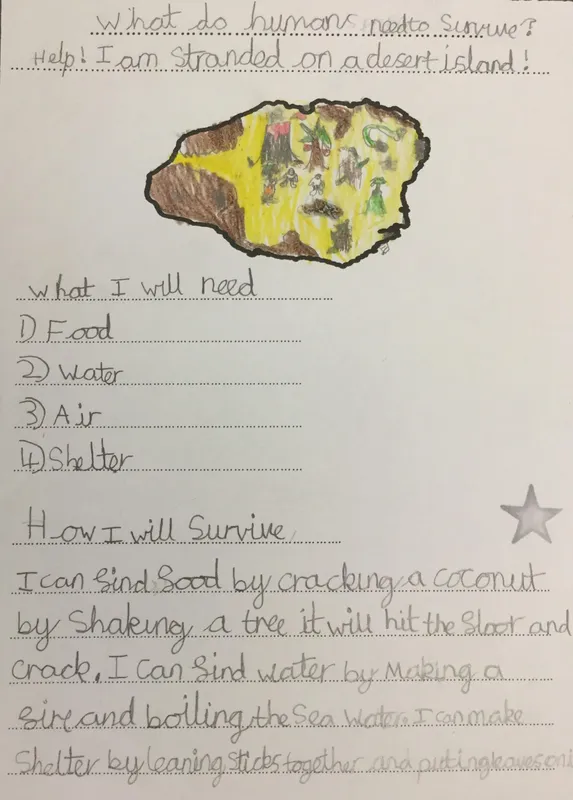 What do humans need to survive?
Help! I am stranded on a desert island!
What I will need
1) Food
2) Water
3) Air
4) Shelter
How I will Survive
I can find food by cracking a coconut
by Shaking a tree it will hit the floor and
crack. I can find water by Making a
fire and boiling the Sea Water. I can make
Shelter by leaning sticks together and putting leaves on i